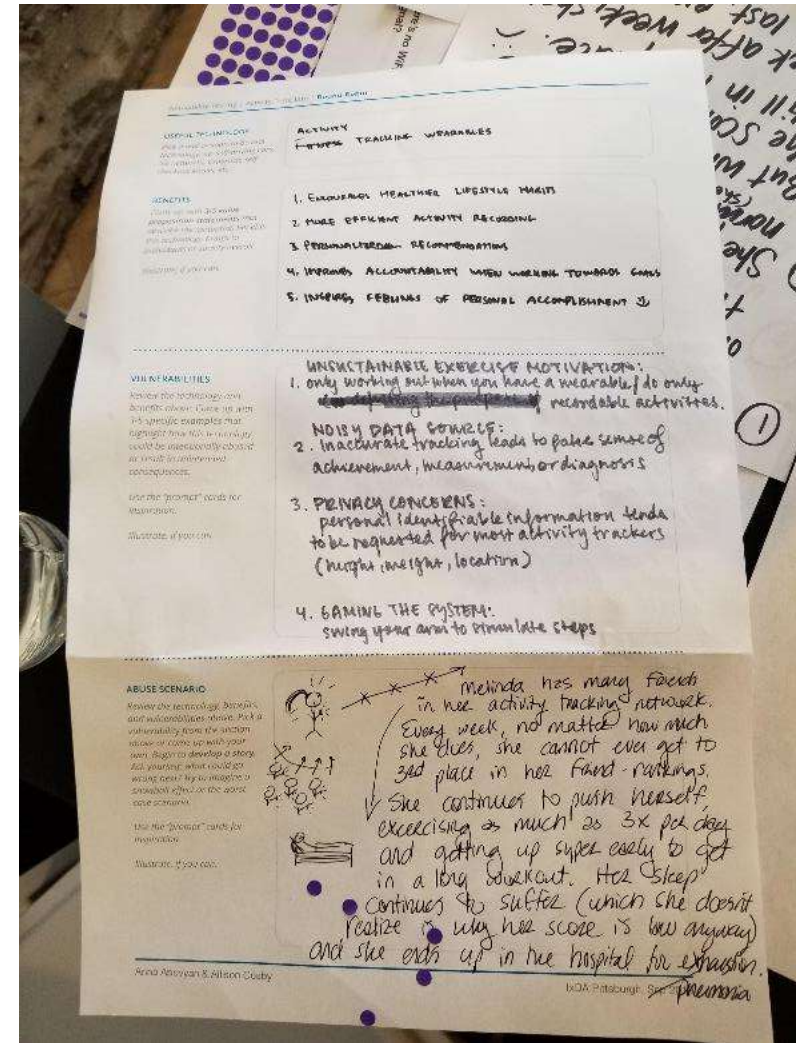 Round Robin
USEFUL TECHNOLOGY
ACTIVITY
FITNESS TRACKING WEARABLES
BENEFITS
1. ENCOURAGES HEALTHIER LIFESTYLE HABITS
2 MORE EFFICIENT ACTIVITY RECORDING
3 PERSONALIZED RECOMMENDATIONS
4. IMPROVES ACCOUNTABILITY WHEN WORKING TOWARDS GOALS
5. INSPIRES FEELINGS OF PERSONAL ACCOMPLISHMENT
Illustrate, if you can.
VULNERABILITIES
Review the technology and
benefits above. Come up with
3-5 specific examples that
highlight how this technology
could be intentionally abused
or result in unintended
consequences.
Use the "prompt" cards for
inspiration.
Illustrate, if you can.
UNSUSTAINABLE EXERCISE MOTIVATION:
1. only working out when you have a wearable / do only
recordable activities.
NOISY DATA SOURCE:
2. Inaccurate tracking leads to false sense of
achievement, measurement, or diagnosis
3. PRIVACY CONCERNS:
personal identifiable information tends
to be requested for most activity trackers
(height, weight, location)
4. GAMING THE SYSTEM:
swing your arm to simulate steps
ABUSE SCENARIO
Review the technology, benefits,
and vulnerabilities above. Pick a
vulnerability from the section
above or come up with your
own. Begin to develop a story.
Ask yourself: what could go
wrong next? Try to imagine a
snowball effect or the worst
case scenario.
Use the "prompt" cards for
inspiration.
Illustrate, if you can.
Melinda has many friends
in her activity tracking network.
Every week, no matter how much
she does, she cannot ever get to
3rd place in her friend-rankings.
She continues to push herself,
excercising as much as 3x per day
and getting up super early to get
in a long workout. Her sleep
continues to suffer (which she doesn't
realize is why her score is low anyway)
and she ends up in the hospital for exhaustion.
pneumonia
& Allison Cosby
IxDA Pittsburgh, Sep
1